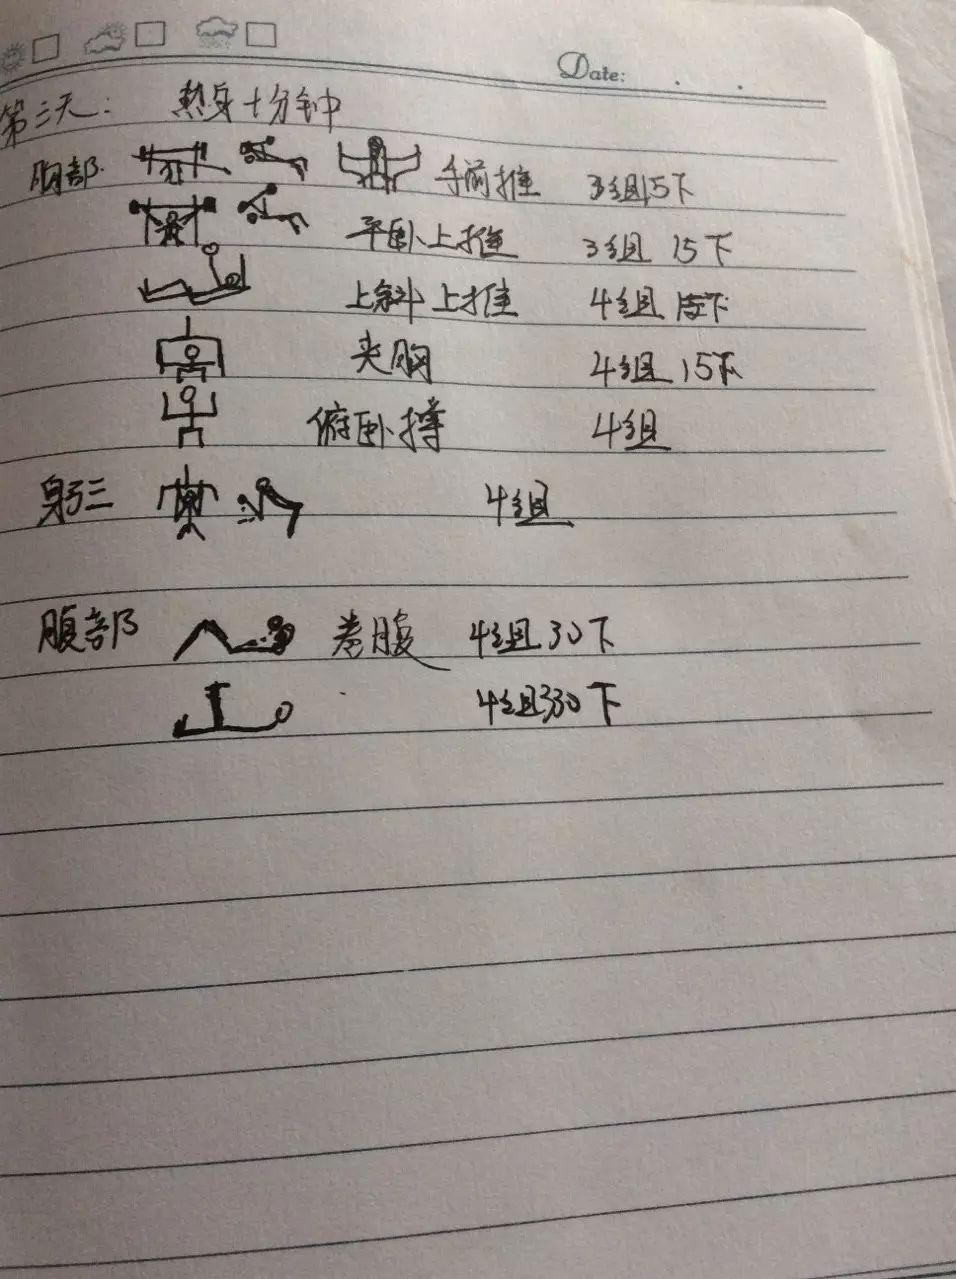 Date:
第三天: 热身十分钟
胸部 手前推 3组15下
平卧上推 3组 15下
上斜上推 4组 15下
夹胸 4组 15下
俯卧撑 4组
三 4组
腹部 卷腹 4组30下
4组 30下